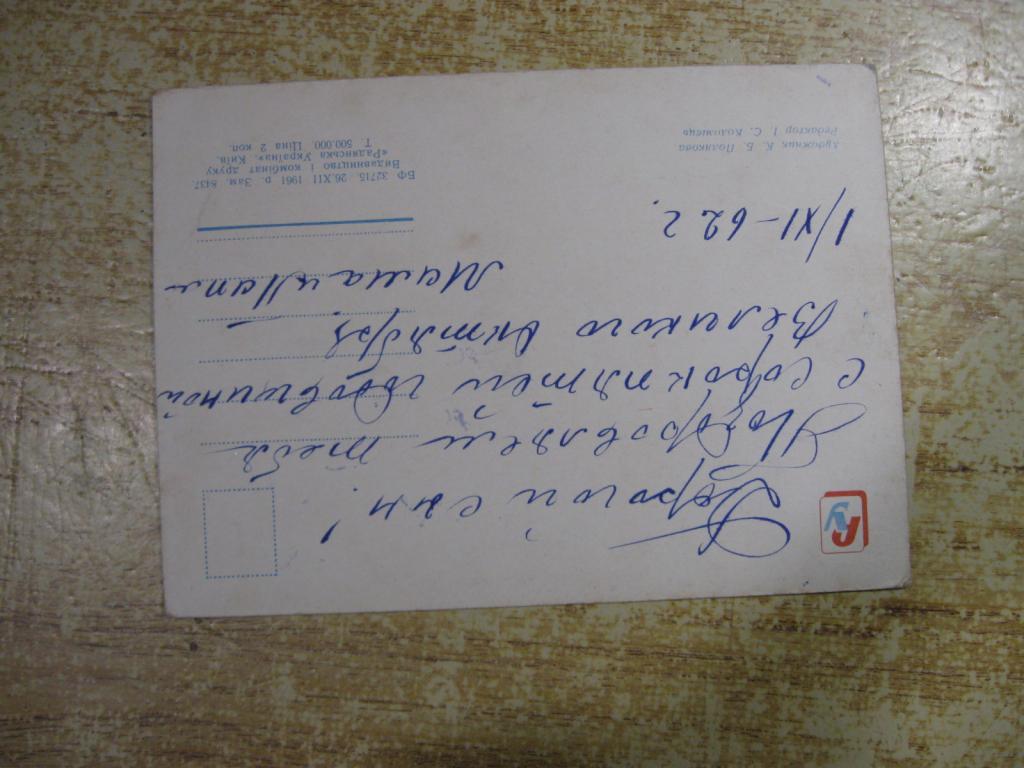 РУ
Дорогой сын!
Поздровляем тебя
с сорокпятой годовщиной
Великого октября
Мама и Папа
1/XI-62 г.
Художник К. Б. Полякова
Редактор І. С. Коломієць
БФ 32715 26.XII 1961 р. Зам. 8437.
Видавництво і комбінат друку
«Радянська Україна», Київ.
Т. 500.000 Ціна 2 коп.